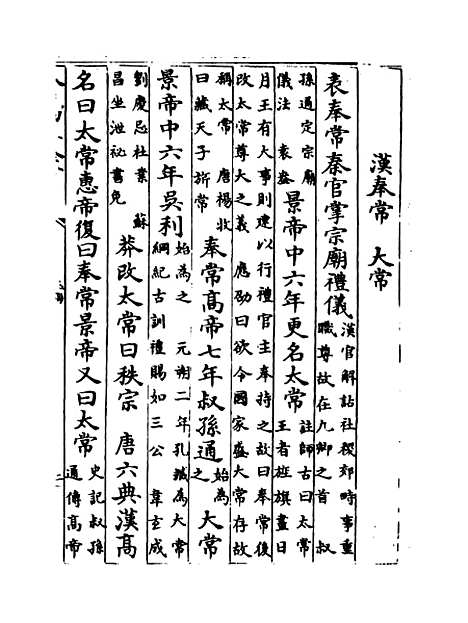 漢奉常　大常
表奉常秦官掌宗廟禮儀漢官解詁社稷郊畤事重職尊故在九卿之首　叔
孫通定宗廟儀法　袁盎景帝中六年更名太常註師古曰太常王者旌旗畫日
月王有大事則建以行禮官主奉持之故曰奉常後改太常尊大之義　應劭曰欲令國家盛大常存故
稱太常　唐楊收曰藏天子旂常奉常高帝七年叔孫通始為之　大常
景帝中六年吳利始為之　元朔二年孔臧為大常綱紀古訓禮賜如三公　韋玄成
劉慶忌杜業　蘇昌坐泄祕書免莽改太常曰秩宗　唐六典漢高
名曰太常惠帝復曰奉常景帝又曰太常史記叔孫通傳高帝